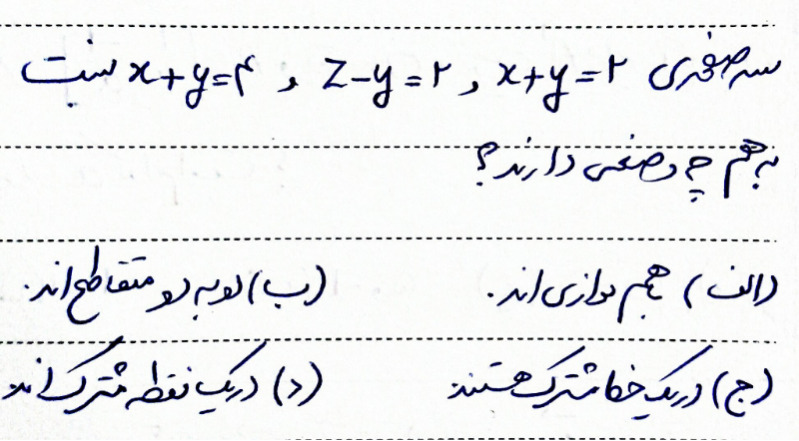 سه صفحه‌ی x+y=۲ , z-y=۲ , x+y=۴ نسبت
به هم چه وضعی دارند؟
(الف) باهم موازی اند. (ب) دو به دو متقاطع اند.
(ج) در یک خط مشترک هستند (د) در یک نقطه مشترک اند